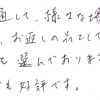 通して、様々な場
、お返しの品として
も選んでおりま
でも好評です。